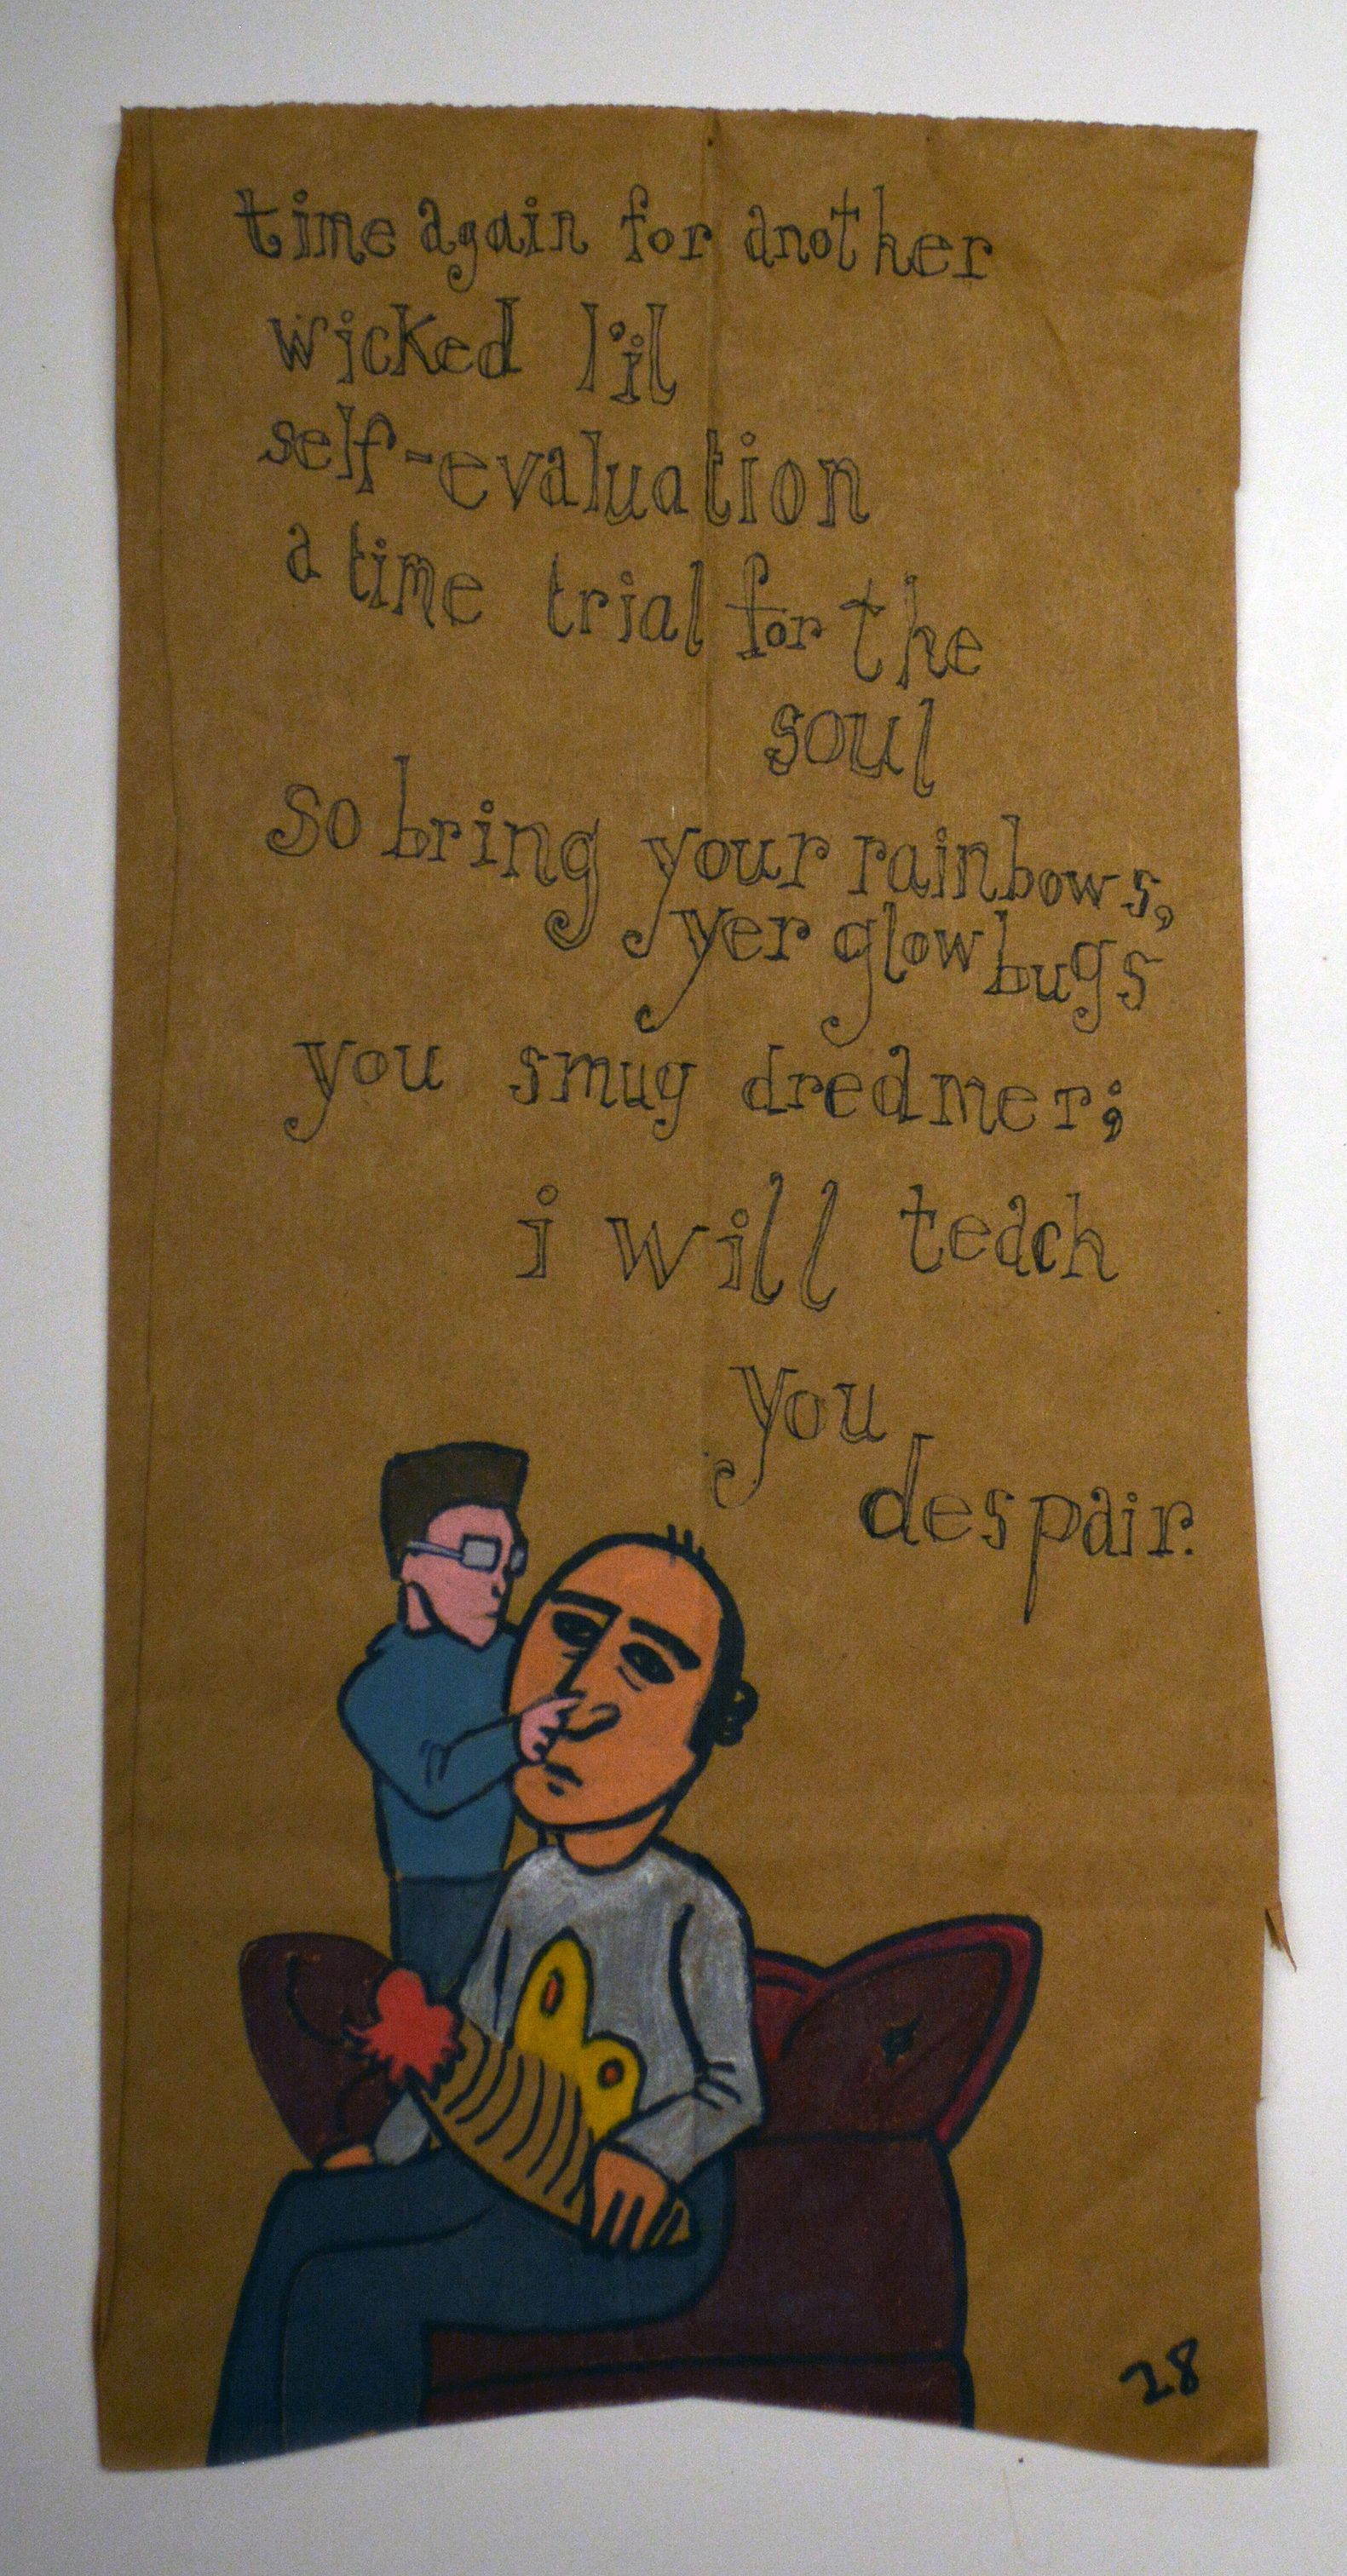 time again for another
wicked l'il
self-evaluation
a time trial for the
soul
so bring your rainbows,
yer glow bugs
you smug dreamer;
i will teach
you
despair.
28